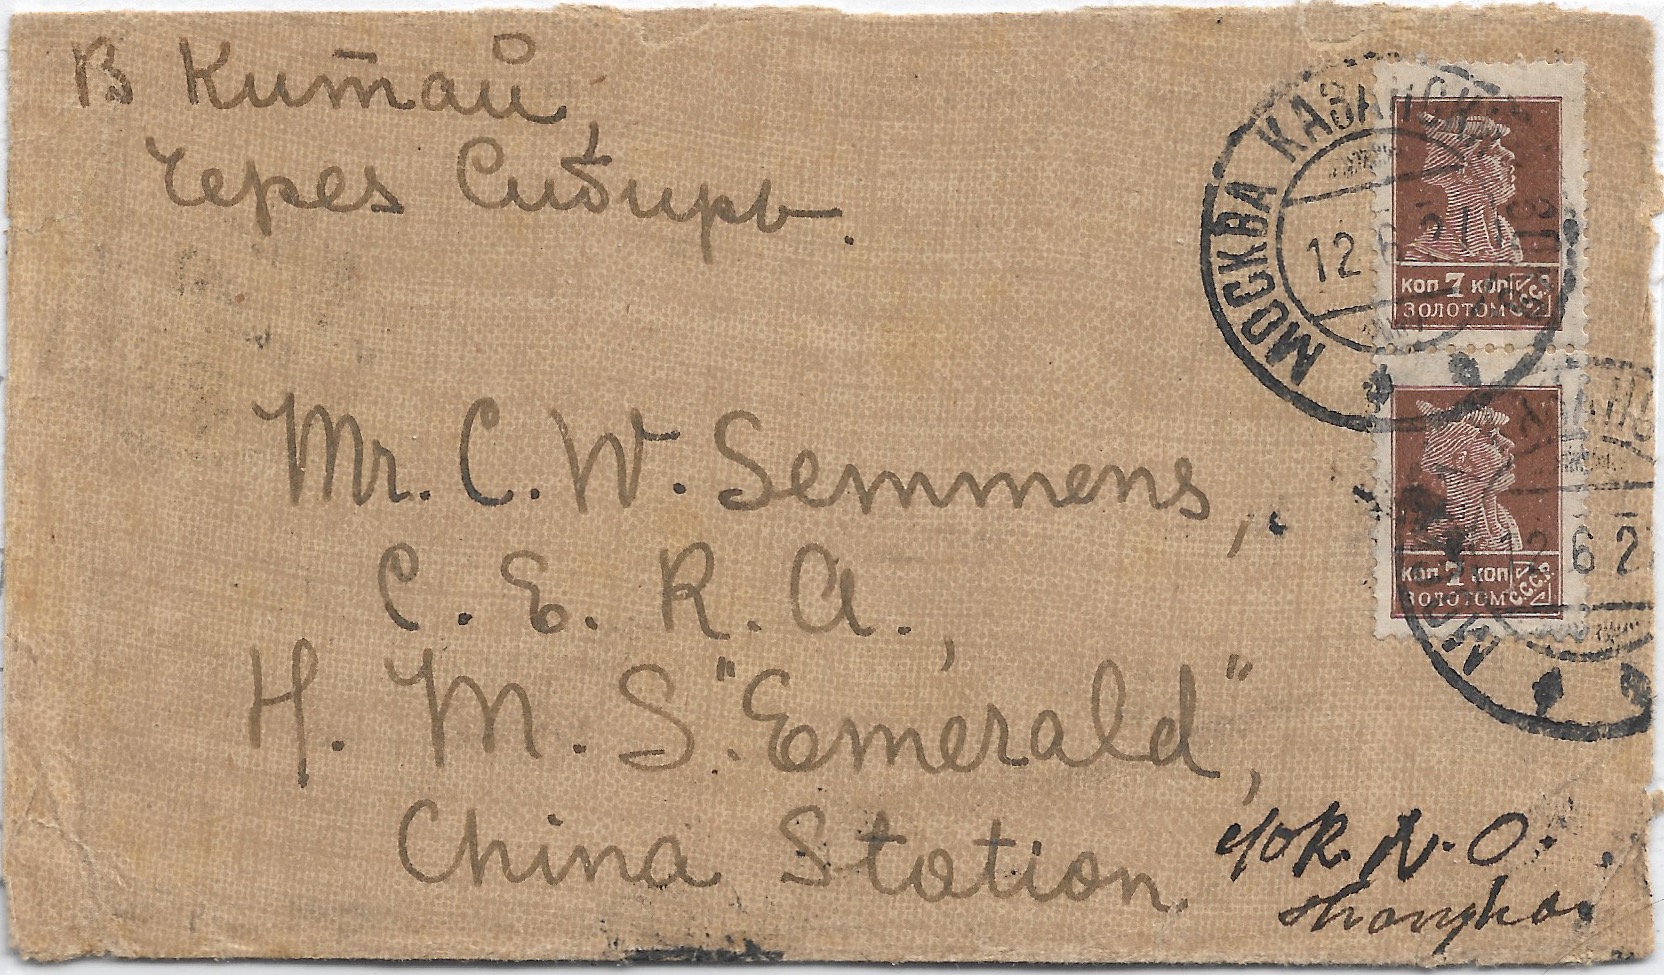 В Китай,
Через Сибирь.
МОСКВА КАЗАНСК
12 6 27
КОП 7 КОП
ЗОЛОТОМ СССР
КОП 7 КОП
ЗОЛОТОМ С.С.С.Р.
12 6 2
Mr. C. W. Semmens,
C. E. R. A.,
H. M. S. "Emerald",
China Station.
R. N. O.
Shangha